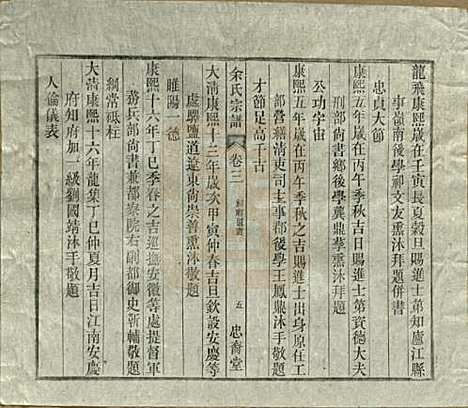 龍飛康熙歲在壬寅長夏穀旦賜進士第知廬江縣
事嶺南後學祁文友熏沐拜題併書
忠貞大節
康熙五年歲在丙午季秋吉日賜進士第資德大夫
刑部尚書鄉後學龔鼎孳熏沐拜題
公功宇宙
康熙五年歲在丙午季秋之吉賜進士出身原任工
部營繕清吏司主事郡後學王鳳鼎沐手敬題
才節足高千古
余氏宗譜
卷三
五
忠裔堂
大清康熙十三年歲次甲寅仲春吉旦欽設安慶等
處驛鹽道遼東尚崇普熏沐敬題
睢陽一德
康熙十六年丁巳季春之吉巡撫安徽等處提督軍
務兵部尚書兼都察院右副都御史靳輔敬題
綱常砥柱
大清康熙十六年龍集丁巳仲夏月吉日江南安慶
府知府加一級劉國靖沐手敬題
人倫儀表